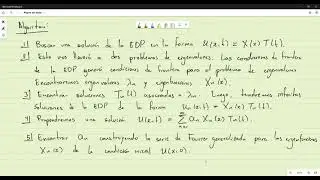 Algoritmo:
1) Buscar una solución de la EDP en la forma U(x,t) = X(x) T(t).
2) Esto nos llevará a dos problemas de eigenvalores. Las condiciones de frontera
de la EDP generan condiciones de frontera para el problema de eigenvalores
Encontramos eigenvalores λn y eigenfunciones Xn(x).
3) Encontrar soluciones Tn(t) asociadas a λn. Luego, tendremos infinitas
soluciones de la EDP de la forma Un(x,t) = Xn(x) Tn(t).
4) Propondremos una solución U(x,t) = ∑ an Xn(x) Tn(t).
5) Encontrar an construyendo la serie de Fourier generalizada para las eigenfunciones
Xn(x) de la condición inicial U(x,0).